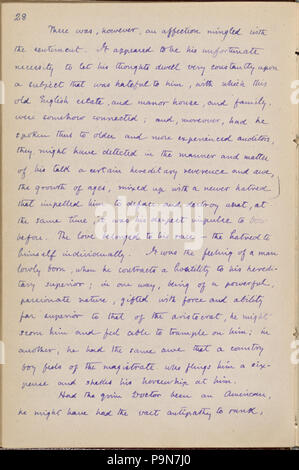 28
There was, however, an affection mingled with
the sentiment. It appeared to be his unfortunate
necessity to let his thoughts dwell very constantly upon
a subject that was hateful to him, with which this
old English estate, and manor house, and family,
were somehow connected; and, moreover, had he
spoken thus to older and more experienced auditors,
they might have detected in the manner and matter
of his talk a certain hereditary reverence and awe,
the growth of ages, mixed up with a newer hatred
that impelled him to deface and destroy what, at
the same time, it was his deepest impulse to bow
before. The love belonged to his race; the hatred to
himself individually. It was the feeling of a man
lowly born, when he contracts a hostility to his heredi-
tary superior; in one way, being of a powerful,
passionate nature, gifted with force and ability
far superior to that of the aristocrat, he might
scorn him and feel able to trample on him; in
another, he had the same awe that a country
boy feels of the magistrate who flings him a six-
pence and shakes his horsewhip at him.
Had the grim Doctor been an American,
he might have had the vast antipathy to rank,
alamy
Image ID: P9N7J0
www.alamy.com